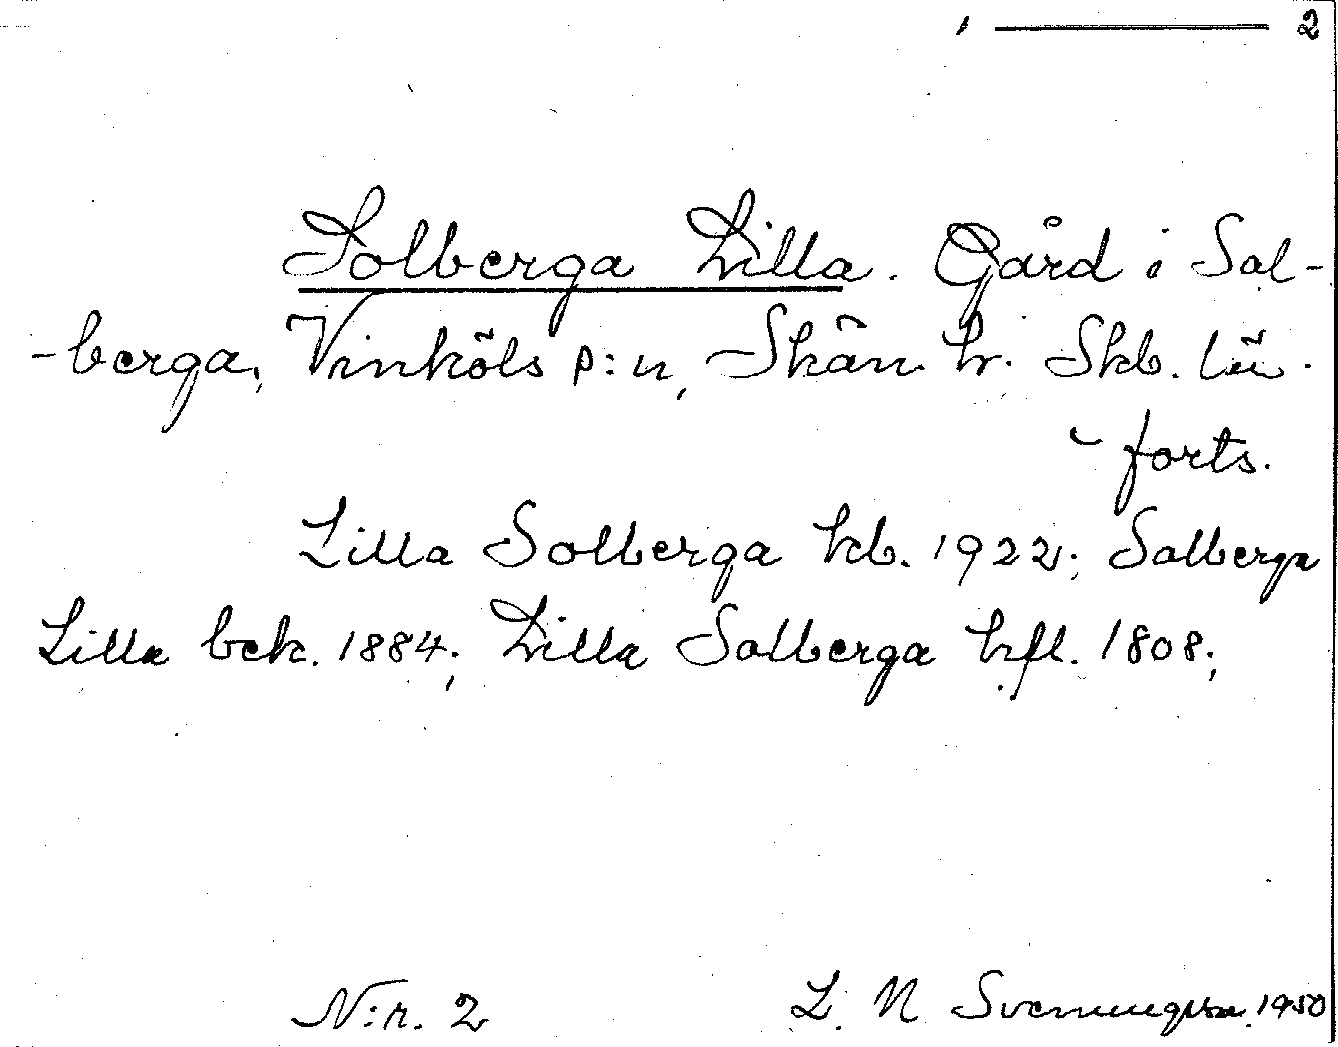 2
Solberga Lilla. Gård i Sol-
-berga, Vinköls p:n, Skån. hr. Skb. län.
- forts.
Lilla Solberga kb. 1922; Solberga
Lilla bek. 1884; Lilla Solberga hfl. 1808;
N:r. 2 L. N Svenungsson. 1950